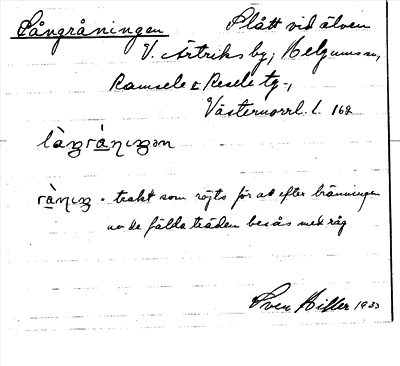 Långråningen Slått vid älven
V. Ärtriks by, Helgums sn,
Ramsele & Resele tg.,
Västernorrl. l. 168
råning = trakt som röjts för att efter bränningen
av de fällda träden besås med råg
1933